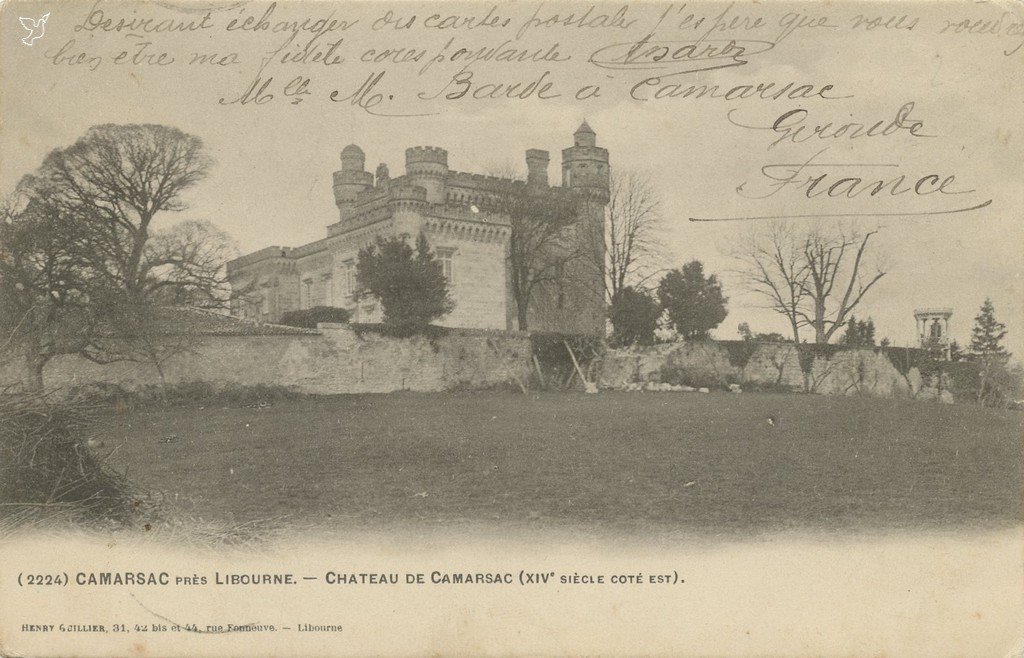 Desirant échanger des cartes postales j'espére que vous voudrez
bien être ma fidèle corespondante
Mlle M. Barde à Camarsac
Gironde
France
(2224) CAMARSAC PRÈS LIBOURNE. — CHATEAU DE CAMARSAC (XIVe SIÈCLE COTÉ EST).
HENRY GUILLIER, 31, 42 bis et 44, rue Fonneuve. — Libourne